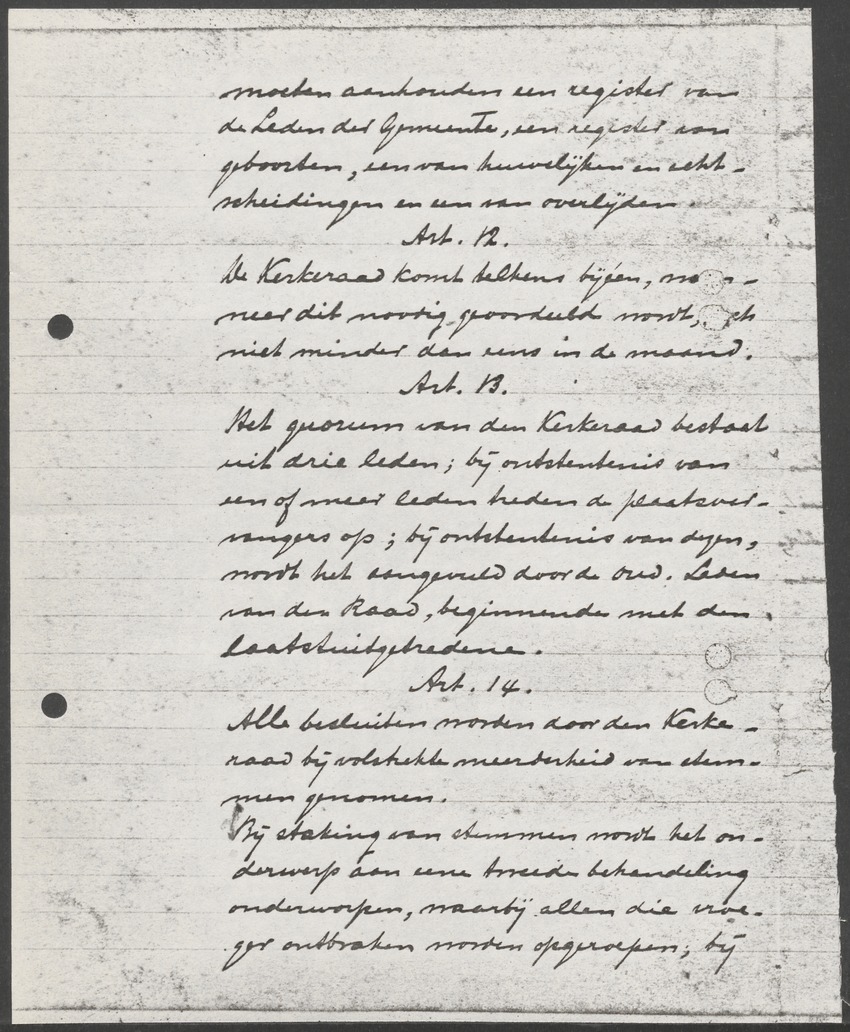 moeten aanhouden een register van
de Leden der Gemeente, een register van
geboorten, een van huwelijken en echt-
scheidingen en een van overlijden
Art. 12.
De Kerkeraad komt telkens bijéen,
neer dit noodig geoordeeld wordt,
niet minder dan eens in de maand.
Art. 13.
Het quorum van den Kerkeraad bestaat
uit drie leden; bij ontstentenis van
een of meer leden treden de plaatsver-
vangers op; bij ontstentenis van dezen,
wordt het aangevuld door de oud. Leden
van den Raad, beginnende met den
laatstuitgetredene.
Art. 14.
Alle besluiten worden door den Kerke-
raad bij volstrekte meerderheid van stem-
men genomen.
Bij staking van stemmen wordt het on-
derwerp aan eene tweede behandeling
onderworpen, waarbij allen die vroe-
ger ontbraken worden opgeroepen; bij